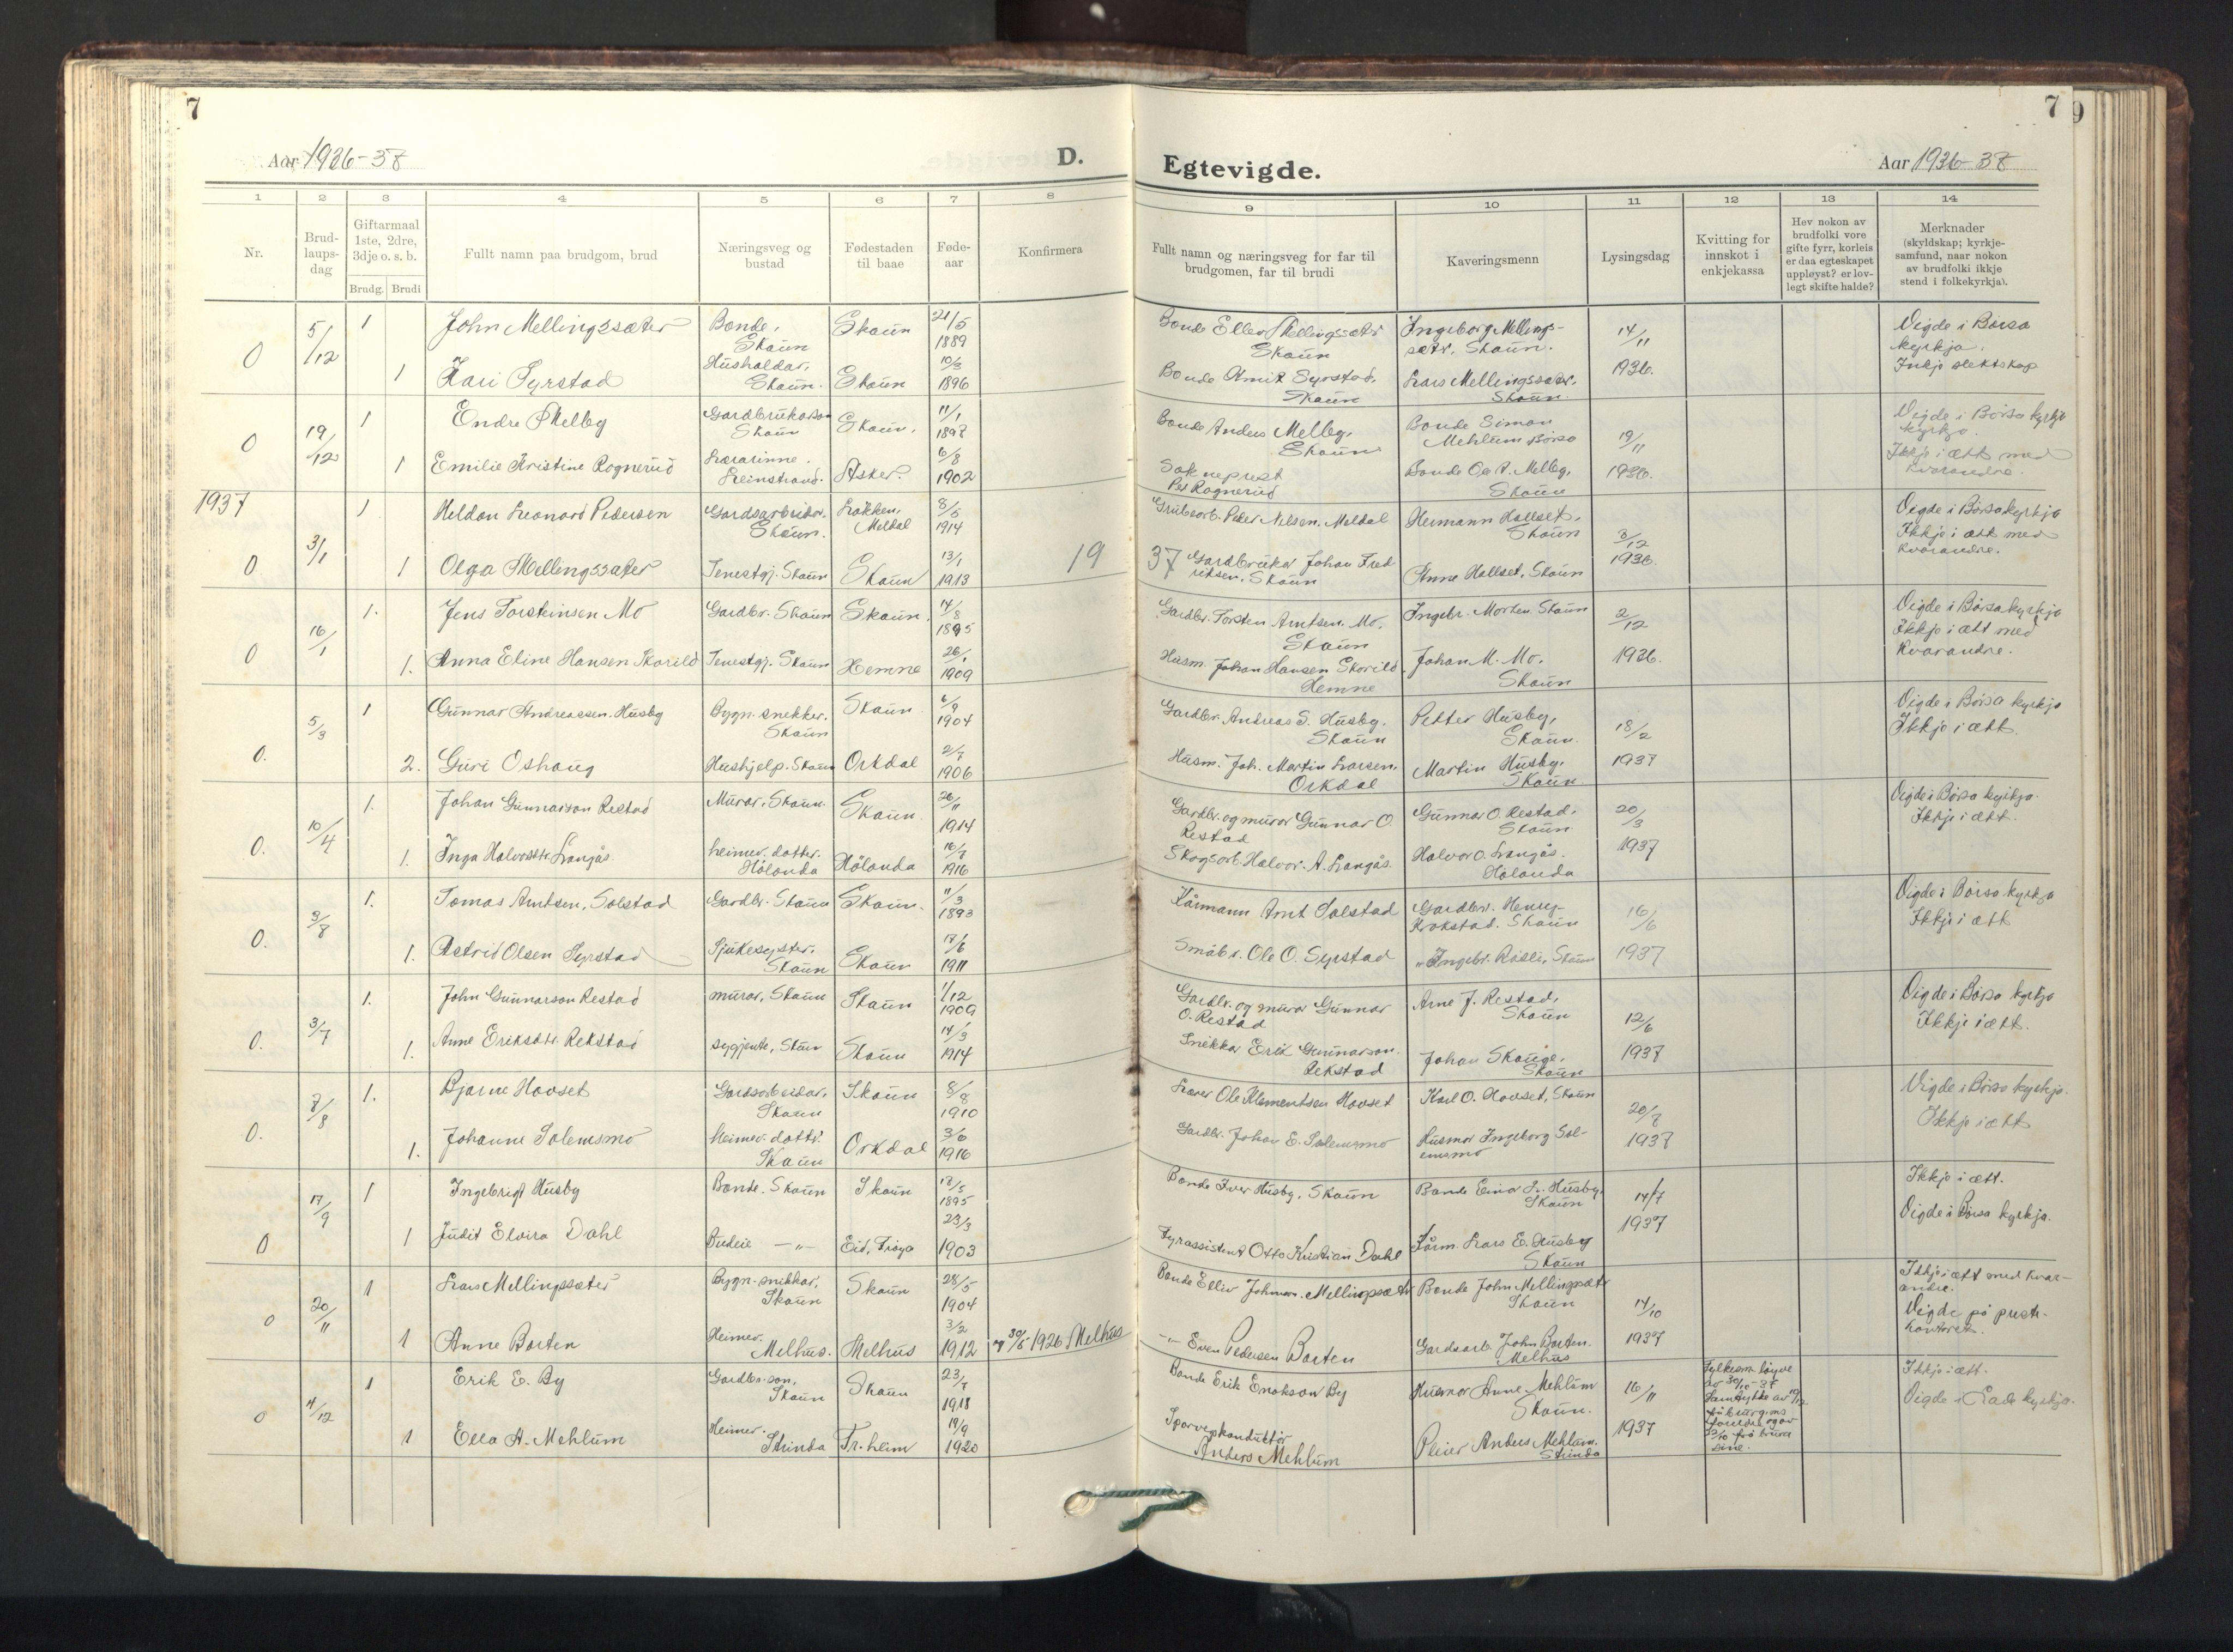 7
Aar 1936-37
D.
Egtevigde.
Aar 1936-37
7
9
1
2
3
4
5
6
7
8
9
10
11
12
13
14
Nr.
Brud-
laups-
dag
Giftarmaal
1ste, 2dre,
3dje o. s. b.
Brudg. Brudi
Fullt namn paa brudgom, brud
Næringsveg og
bustad
Fødestaden
til baae
Føde-
aar
Konfirmera
Fullt namn og næringsveg for far til
brudgomen, far til brudi
Kaveringsmenn
Lysingsdag
Kvitting for
innskot i
enkjekassa
Hev nokon av
brudfolki vore
gifte fyrr, korleis
er daa egteskapet
uppløyst? er lov-
legt skifte halde?
Merknader
(skyldskap; kyrkje-
samfund, naar nokon
av brudfolki ikkje
stend i folkekyrkja).
0
5/12
1
John Mellingssæter
Bonde,
Skaun
Skaun
21/5
1889
Bonde Ellev Mellingssætr
Skaun
Ingeborg Mellings-
sætr, Skaun.
14/11
1936.
Vigde i Børsa
kyrkja.
Inkje slektskap
1
Kari Syrstad
Husholdar,
Skaun.
Skaun
10/3
1896
Bonde Arnt Syrstad,
Skaun
Lars Mellingssæter,
Skaun.
0
19/12
1
Endre Melby
Gardbrukarson
Skaun
Skaun.
11/1
1897
Bonde Anders Melby,
Skaun
Bonde Simon
Mehlum Børsa
19/11
1936.
Vigde i Børsa kyrkje
kyrkja.
Ikkje i ætt med
kvarandre.
1
Emilie Kristine Rognerud
Lærarinne.
Leinstrand.
Asker.
6/8
1902
Sokneprest
Per Rognerud
Bonde Ola A. Melby,
Skaun
1937
0
3/1
1
Heldan Leonard Pedersen
Gardsarbeidar,
Skaun.
Løkken,
Meldal
8/5
1914
Grubearb. Peder Nilsen, Meldal
Hermann Hallset,
Skaun
3/12
1936.
Vigde i Børsa kyrkja
Ikkje i ætt med
kvarandre.
1
Olga Mellingssæter
Tenestgj. Skaun
Skaun
13/1
1913
19
37
Gardbrukar Johan Fred
riksen, Skaun
Anne Hallset, Skaun
0
16/1
1.
Jens Torsteinsen Mo
Gardbr. Skaun
Skaun.
14/8
1895
Gardbr. Torsten Arntsen Mo,
Skaun
Ingebr. Morken Skaun
2/12
1936.
Vigde i Børsa kyrkja
Ikkje i ætt med
kvarandre.
1.
Anna Eline Hansen Skarild
Tenestgj. Skaun
Hemne
26/1
1909
Husm. Johan Hansen Skorild
Hemne
Johan M. Mo.
Skaun
0.
5/3
1
Gunnar Andreassen Husby
Bygn. snekker.
Skaun
Skaun
6/9
1904
Gardbr. Andreas S. Husby.
Skaun
Petter Husby,
Skaun.
18/2
1937
Vigde i Børsa kyrkja
Ikkje i ætt.
2.
Guri Oshaug
Hushjelp. Skaun
Orkdal
2/7
1906
Husm. Joh. Martin Larsen,
Orkdal
Martin Husby,
Skaun
0.
10/4
1.
Johan Gunnarson Restad
Murar, Skaun.
Skaun.
26/11
1914
Gardbr. og murar Gunnar O.
Restad
Gunnar O. Restad,
Skaun
20/3
1937
Vigde i Børsa kyrkja.
Ikkje i ætt.
1.
Inga Halvorsdtr Langås.
heimev. dotter.
Hølonda
Hølonda
16/7
1916
Skogsarb. Halvor. A. Langås.
Halvor O. Langås.
Hølonda
0.
3/8
1.
Tomas Arntsen, Solstad
Gardbr. Skaun
Skaun.
11/3
1893
Kårmann Arnt Solstad
Gardbr. Henry
Krokstad. Skaun
16/6
1937
Vigde i Børsa kyrkja
Ikkje i ætt
1.
Astrid Olsen Syrstad
Sjukesyster,
Skaun
Skaun
17/6
1911
Småbr. Ole O. Syrstad
" Ingebr. Råsli, Skaun
0.
3/7
1.
John Gunnarson Restad
murar, Skaun
Skaun
1/12
1909
Gardbr. og murar Gunnar
O. Restad
Arne J. Restad,
Skaun
12/6
1937
Vigde i Børsa kyrkja
Ikkje i ætt.
1.
Anne Eriksdtr. Rekstad
sygjente, Skaun
Skaun
14/3
1914
Snekkar Erik Gunnarson
Rekstad
Johan Skauge,
Skaun
0.
7/8
1.
Bjarne Hovset
Gardsarbeidar,
Skaun
Skaun
8/8
1910
Lærer Ole Klementsen Hovset
Karl O. Hovset, Skaun
20/7
1937
Vigde i Børsa kyrkja.
Ikkje i ætt
1.
Johanne Solemsmo
Heimev. dottr.
Skaun
Orkdal
3/6
1916
Gardbr. Johan E. Solemsmo
Husmor Ingeborg Sol-
emsmo
0
17/9
1
Ingebrigt Husby
Bonde. Skaun
Skaun
12/5
1895
Bonde Iver Husby, Skaun
Bonde Einar L. Husby,
Skaun
14/7
1937
Ikkje i ætt.
Vigde i Børsa kyrkja.
1
Judit Elvira Dahl
Budeie —"—
Eid, Frøya
23/3
1903
Fyrassistent Otto Kristian Dahl
Kårm. Lars E. Husby
Skaun
0
20/11
1
Lars Mellingsæter
Bygn-snikkar,
Skaun
Skaun
28/5
1904
Bonde Elliv Johnsen Mellingsætr
Bonde John Mellingsætr
Skaun
14/10
1937
Ikkje i ætt med kvar-
andre.
Vigde på prest-
kontoret.
1
Anne Borten
Heimev.
Melhus.
Melhus
3/2
1912
30/5 1926 Melhus
—"— Even Pedersen Borten
Gardsarb. John Borten.
Melhus
0
4/12
1
Erik E. By
Gardbr.son,
Skaun
Skaun
23/7
1918
Bonde Erik Enokson By
Husmor Anne Mehlum
Skaun.
16/11
1937
Fylkesm. løyve
av 30/10-37
Samtykke av
frå brurgoms
foreldre og av
frå brura
sine.
Ikkje i ætt.
Vigde i Lade kyrkja.
1
Ella A. Mehlum
Heimev.
Strinda
Tr.heim
19/9
1920
Sporvegskonduktør
Anders Mehlum
Pleier Anders Mehlum.
Strinda